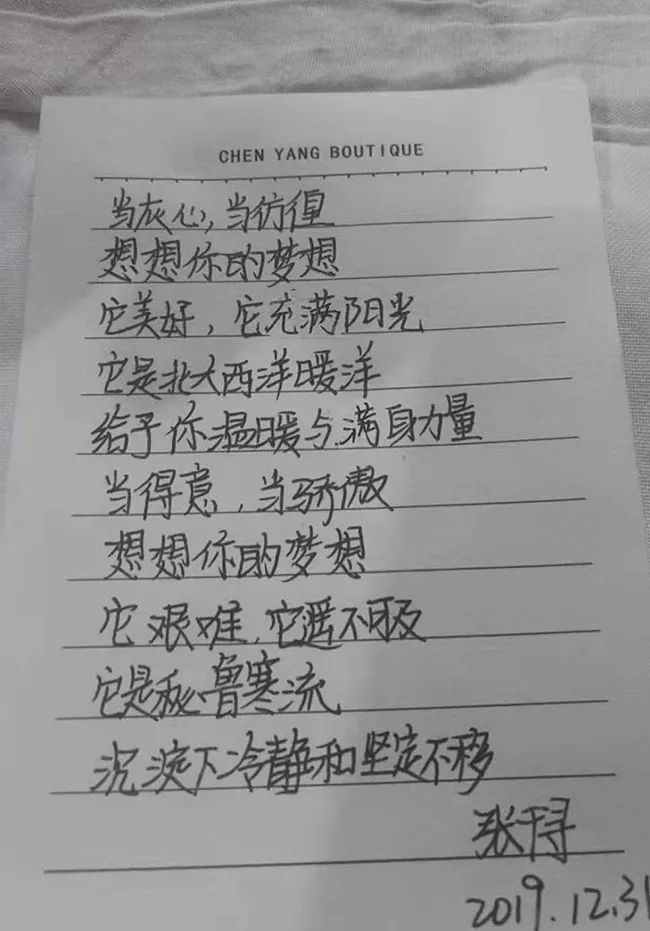 CHEN YANG BOUTIQUE
当灰心,当彷徨
想想你的梦想
它美好,它充满阳光
它是北大西洋暖洋
给予你温暖与满身力量
当得意,当骄傲
想想你的梦想
它艰难,它遥不可及
它是秘鲁寒流
沉淀下冷静和坚定不移
张千寻
2019.12.31